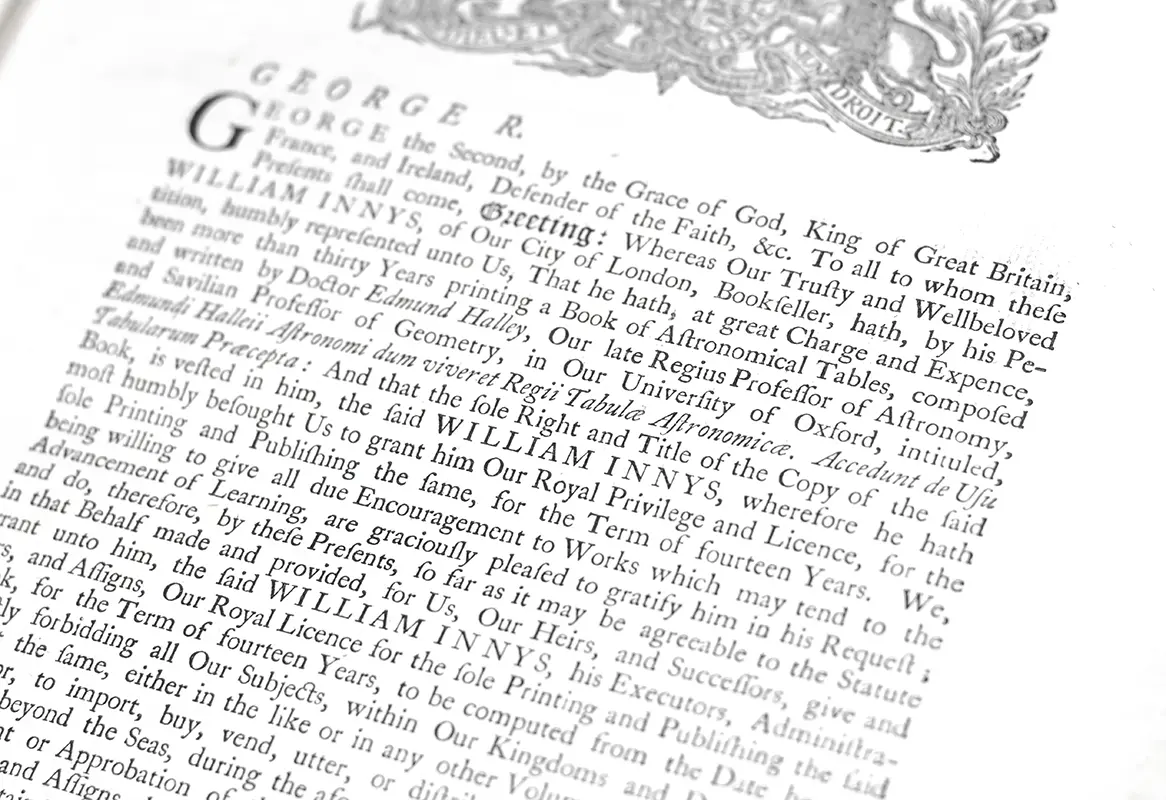 DROIT
GEORGE R.
GEORGE the Second, by the Grace of God, King of Great Britain,
France, and Ireland, Defender of the Faith, &c. To all to whom theſe
Preſents ſhall come, Greeting: Whereas Our Truſty and Wellbeloved
WILLIAM INNYS, of Our City of London, Bookſeller, hath, by his Pe-
tition, humbly repreſented unto Us, That he hath, at great Charge and Expence,
been more than thirty Years printing a Book of Aſtronomical Tables, compoſed
and written by Doctor Edmund Halley, Our late Regius Profeſſor of Aſtronomy,
and Savilian Profeſſor of Geometry, in Our Univerſity of Oxford, intituled,
Edmundi Halleii Aſtronomi dum viveret Regii Tabulæ Aſtronomicæ. Accedunt de Uſu
Tabularum Præcepta: And that the ſole Right and Title of the Copy of the ſaid
Book, is veſted in him, the ſaid WILLIAM INNYS, wherefore he hath
moſt humbly beſought Us to grant him Our Royal Privilege and Licence, for the
ſole Printing and Publiſhing the ſame, for the Term of fourteen Years. We,
being willing to give all due Encouragement to Works which may tend to the
Advancement of Learning, are graciouſly pleaſed to gratify him in his Requeſt;
and do, therefore, by theſe Preſents, ſo far as it may be agreeable to the Statute
in that Behalf made and provided, for Us, Our Heirs, and Succeſſors, give and
rant unto him, the ſaid WILLIAM INNYS, his Executors, Adminiſtra-
rs, and Aſſigns, Our Royal Licence for the ſole Printing and Publiſhing the ſaid
k, for the Term of fourteen Years, to be computed from the Date
ly forbidding all Our Subjects, within Our Kingdoms and
the ſame, either in the like or in any other
or, to import, buy, vend, utter, or
beyond the Seas, during the
nt or Approbation of
and Aſſigns